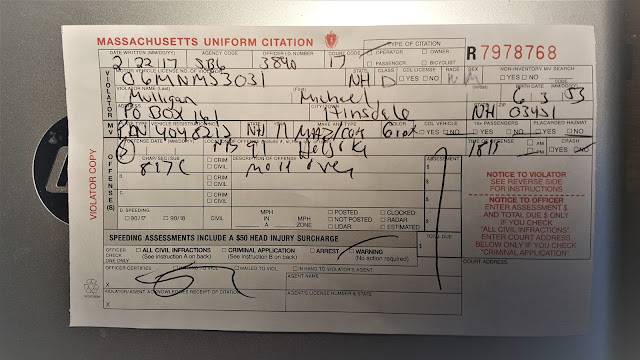 MASSACHUSETTS UNIFORM CITATION
R 7978768
TYPE OF CITATION
DATE WRITTEN (MM/DD/YY) AGENCY CODE OFFICER I.D. NUMBER OPERATOR OWNER
PASSENGER BICYCLIST
2 22 17 SB6 3840 17
MOTOR VEHICLE LICENSE NO. STATE CLASS CDL LICENSE RACE SEX NON-INVENTORY MV SEARCH
06MNM53031 NH D YES NO YES NO
VIOLATOR NAME (Last) (First)
Mulligan Michael 6 3 53
ADDRESS CITY/TOWN STATE ZIP
PO Box 161 Hinsdale NH 03451
VEHICLE REGISTRATION NO. STATE TYPE MAKE/TYPE COLOR CDL VEHICLE 16+ PASSENGERS PLACARDED HAZMAT
PN 4048213 NH YES NO YES NO YES NO
TIME OF OFFENSE CRASH
AM PM YES NO
VIOLATOR
MV
OFFENSE(S)
VIOLATOR COPY
CHAP/SEC/SUB DESCRIPTION OF OFFENSE ASSESSMENT
817C CRIM CIVIL move over $
B. CRIM CIVIL $
C. CRIM CIVIL $
D. SPEEDING MPH MPH POSTED CLOCKED
90/17 90/18 CIVIL IN A ZONE NOT POSTED RADAR
LIDAR ESTIMATED $
SPEEDING ASSESSMENTS INCLUDE A $50 HEAD INJURY SURCHARGE
TOTAL DUE
$
OFFICER CHECK ONE ONLY ALL CIVIL INFRACTIONS (See instruction A on back) CRIMINAL APPLICATION (See instruction B on back) ARREST WARNING (No action required)
OFFICER CERTIFIES IN HAND TO VIOL. MAILED TO VIOL. IN HAND TO VIOLATOR'S AGENT
AGENT NAME
X
VIOLATOR/AGENT ACKNOWLEDGES RECEIPT OF CITATION AGENT'S LICENSE NUMBER & STATE
X
NOTICE TO VIOLATOR
SEE REVERSE SIDE
FOR INSTRUCTIONS
NOTICE TO OFFICER
ENTER ASSESSMENT $
AND TOTAL DUE $ ONLY
IF YOU CHECK
"ALL CIVIL INFRACTIONS".
ENTER COURT ADDRESS
BELOW ONLY IF YOU CHECK
"CRIMINAL APPLICATION".
COURT ADDRESS